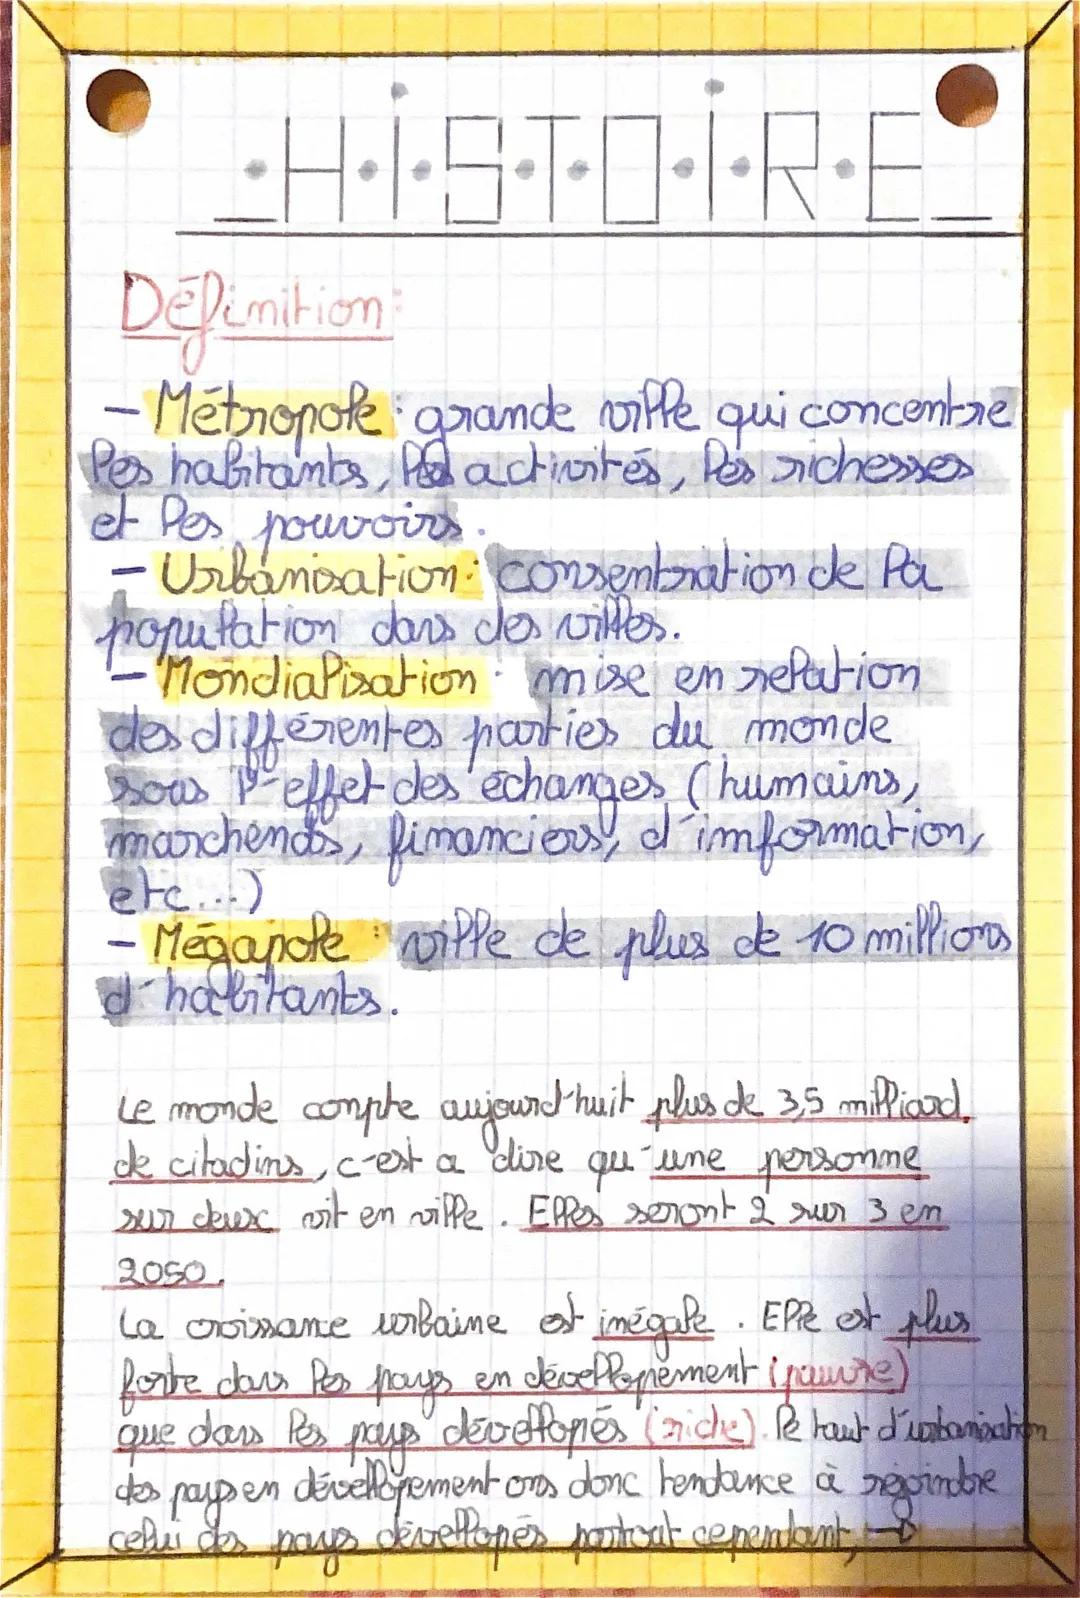 .H.I.S.T.O.I.R.E
Définition:
- Métropole : grande ville qui concentre
les habitants, les activités, les richesses
et les pouvoirs.
- Urbanisation : consentration de la
population dans des villes.
- Mondialisation : mise en relation
des différentes parties du monde
sous l'effet des échanges (humains,
marchends, financiers, d'imformation,
etc...)
- Mégapole : ville de plus de 10 millions
d'habitants.
Le monde compte aujourd'huit plus de 3,5 milliard
de citadins, c'est a dire qu'une personne
sur deux vit en ville. Elles seront 2 sur 3 en
2050.
La croissance urbaine est inégale. Elle est plus
forte dans les pays en dévellopement (pauvre)
que dans les pays dévellopés (riche). le taut d'urbanisation
des pays en dévellopement ons donc tendance à rejoindre
celui des pays dévellopés partout cependant, →